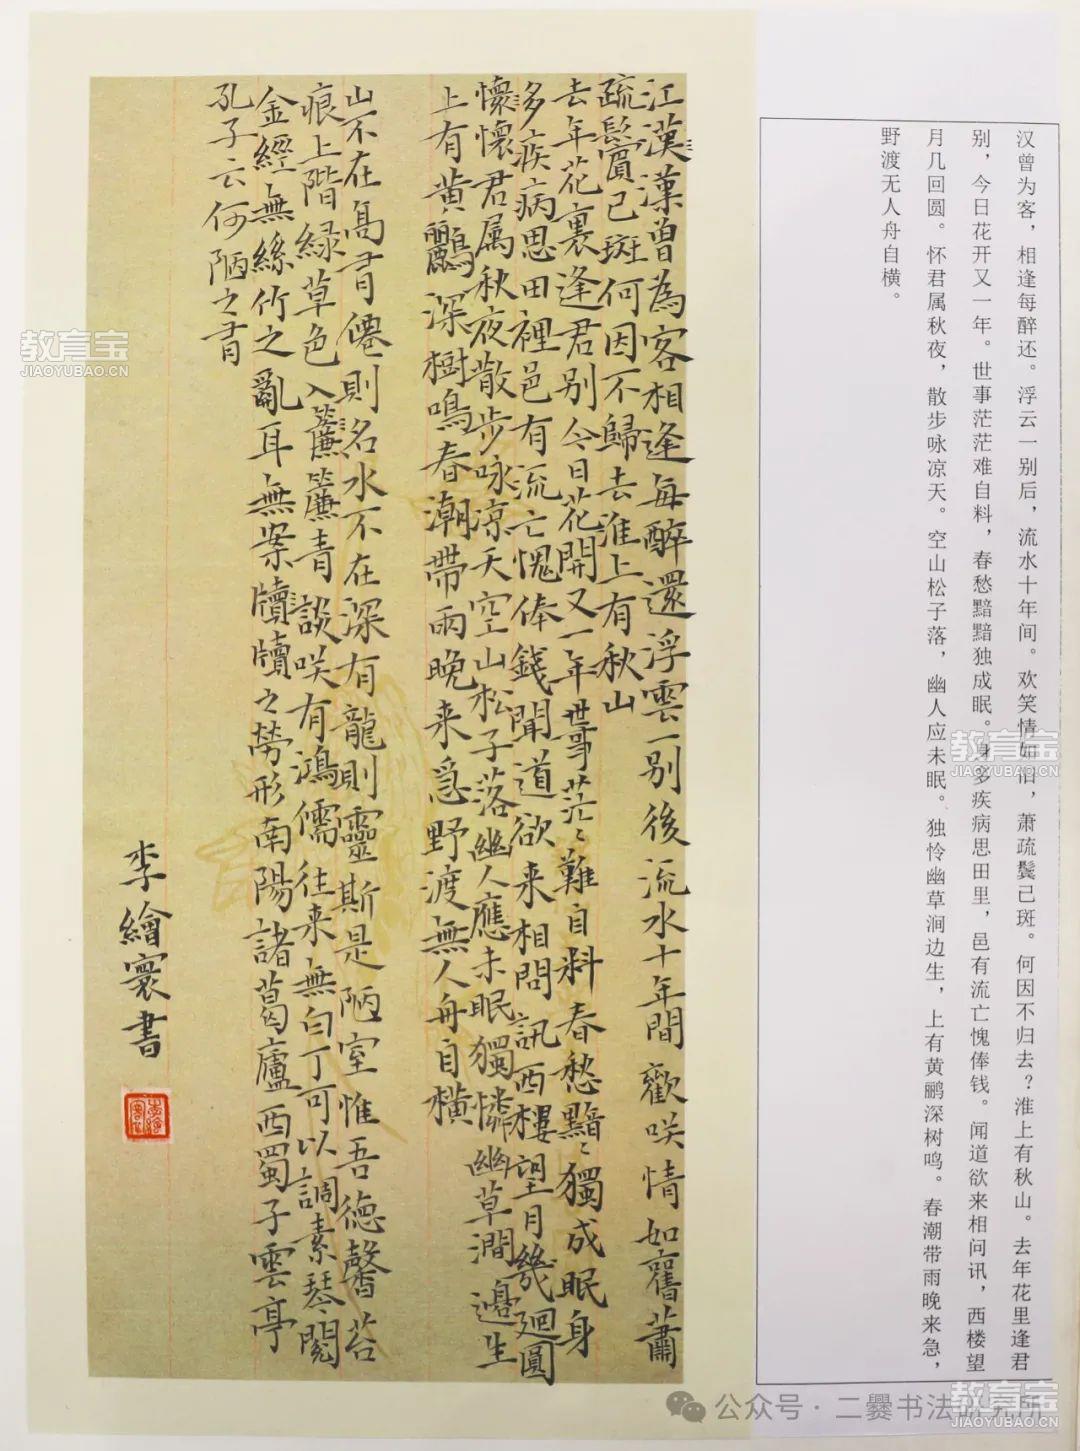 汉曾为客，相逢每醉还。浮云一别后，流水十年间。欢笑情如旧，萧疏鬓已斑。何因不归去？淮上有秋山。去年花里逢君
别，今日花开又一年。世事茫茫难自料，春愁黯黯独成眠。身多疾病思田里，邑有流亡愧俸钱。闻道欲来相问讯，西楼望
月几回圆。怀君属秋夜，散步咏凉天。空山松子落，幽人应未眠。独怜幽草涧边生，上有黄鹂深树鸣。春潮带雨晚来急，
野渡无人舟自横。
江漢漢曾為客相逢每醉還浮雲一别後流水十年間歡咲情如舊蕭
疏鬢已斑何因不歸去淮上有秋山
去年花裏逢君别今日花開又一年世事茫〻難自料春愁黯〻獨成眠身
多疾病思田裡邑有流亡愧俸錢聞道欲来相問訊西樓望月幾廻圓
懷懷君属秋夜散步咏凉天空山松子落幽人應未眠獨憐幽草澗邊生
上有黄鸝深樹鳴春潮帶雨晚来急野渡無人舟自横
山不在高有僊則名水不在深有龍則靈斯是陋室惟吾德馨苔
痕上階緑草色入簾簾青談咲有鴻儒往来無白丁可以調素琴閲
金經無絲竹之亂耳無案牘牘之勞形南陽諸葛廬西蜀子雲亭
孔子云何陋之有
李繪寰書
教育宝
JIAOYUBAO.CN
教育宝
JIAOYUBAO.CN
教育宝
JIAOYUBAO.CN
公众号·二爨书法研究所